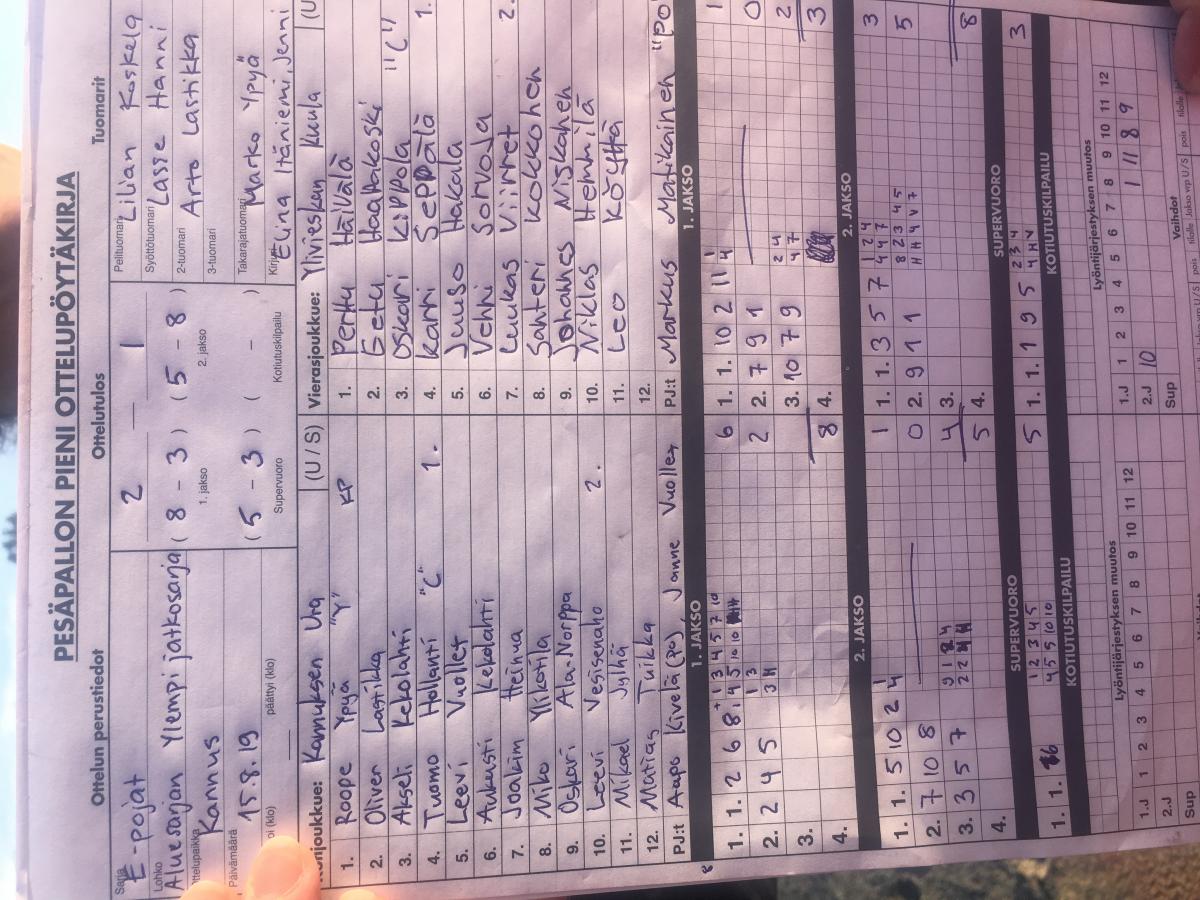 PESÄPALLON PIENI OTTELUPÖYTÄKIRJA
Ottelun perustiedot
Sarja
E-pojat
Lohko
Aluesarjan Ylempi jatkosarja
ttelupaikka
Kannus
Päivämäärä
15.8.19
oi (klo) päättyi (klo)
Ottelutulos
2 — 1
( 8 - 3 ) ( 5 - 8 )
1. jakso 2. jakso
( 5 - 3 ) ( - )
Supervuoro Kotiutuskilpailu
Tuomarit
Pelituomari Lilian Koskela
Syöttötuomari Lasse Hanni
2-tuomari Arto Lastikka
3-tuomari
Takarajatuomari Marko Ypyä
Kirjuri Elina Itäniemi, Jenni
Kotijoukkue: Kannuksen Ura (U / S)
1. Roope Ypyä "Y" KP
2. Oliver Lastikka
3. Akseli Kekolahti
4. Tuomo Hollanti "C" 1.
5. Leevi Vuollet
6. Aukusti Kekolahti
7. Joakim Heinua
8. Miko Ylikotila
9. Oskari Ala-Norppa
10. Leevi Vesisenaho 2.
11. Mikael Jylhä
12. Matias Tuikka
PJ:t Aapo Kivelä (po), Janne Vuollet
Vierasjoukkue: Ylivieskan Kuula (U
1. Perttu Häivälä
2. Eetu Haapakoski
3. Oskari Kippola "C"
4. Karri Seppälä 1.
5. Juuso Hakala
6. Venni Sorvoja
7. Luukas Viirret 2.
8. Santeri Kokkonen
9. Johannes Niskanen
10. Niklas Hemmilä
11. Leo Köyhä
12.
PJ:t Markus Matikainen "po"
1. JAKSO
1. 1. 2 6 8 6
2. 2 4 5 2
3.
4. 8
2. JAKSO
1. 1. 5 10 2 1
2. 7 10 8 0
3. 3 5 7 4
4. 5
SUPERVUORO
1. 1. 5
KOTIUTUSKILPAILU
Lyöntijärjestyksen muutos
1 2 3 4 5 6 7 8 9 10 11 12
1.J
2.J
Sup
1. JAKSO
1. 1. 10 2 11 1
2. 7 9 1 0
3. 10 7 9 2
4. 3
2. JAKSO
1. 1. 3 5 7 3
2. 9 1 1 5
3.
4. 8
SUPERVUORO
1. 1. 1 9 5 3
KOTIUTUSKILPAILU
Lyöntijärjestyksen muutos
1 2 3 4 5 6 7 8 9 10 11 12
1.J
2.J 10 1 11 8 9
Sup
Vaihdot